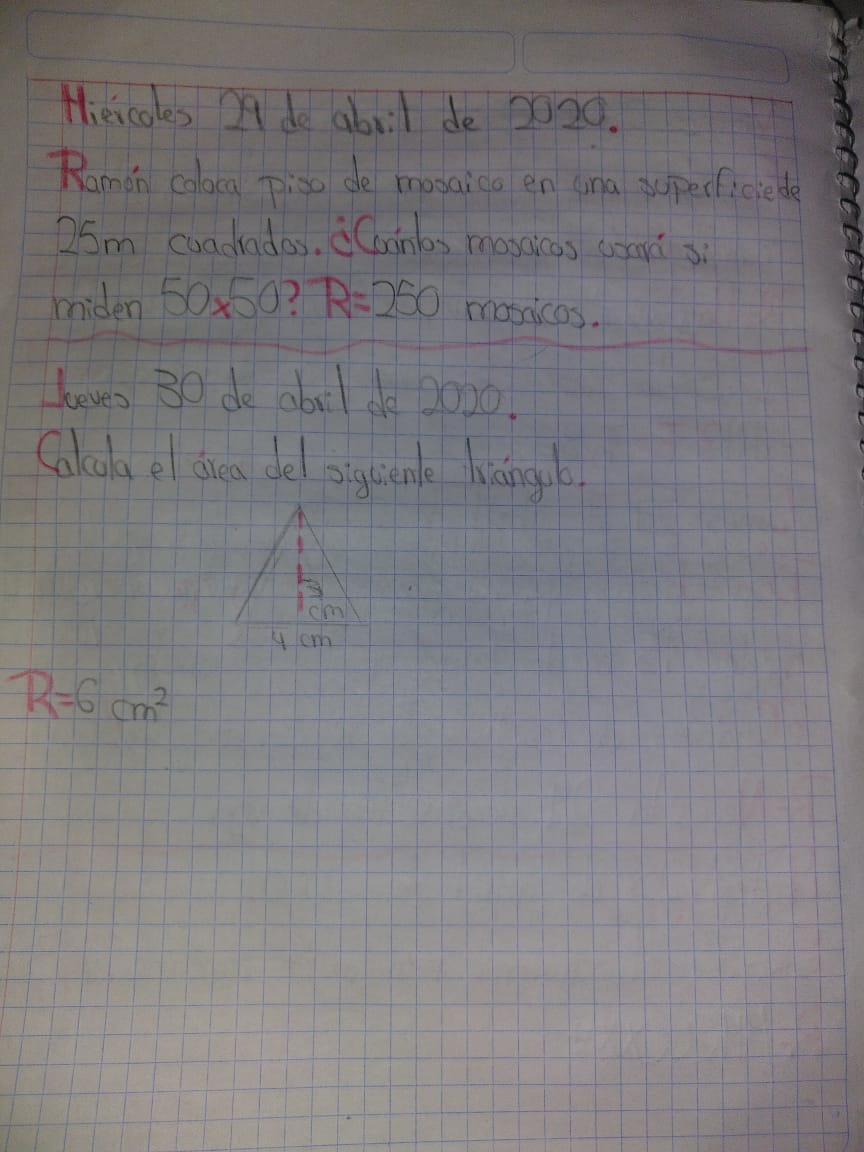 Miércoles 29 de abril de 2020.
Ramón coloca piso de mosaico en una superficie de
25m cuadrados. ¿Cuántos mosaicos usará si
miden 50x50? R=250 mosaicos.
Jueves 30 de abril de 2020.
Calcula el área del siguiente triángulo.
3
cm
4 cm
R=6 cm²